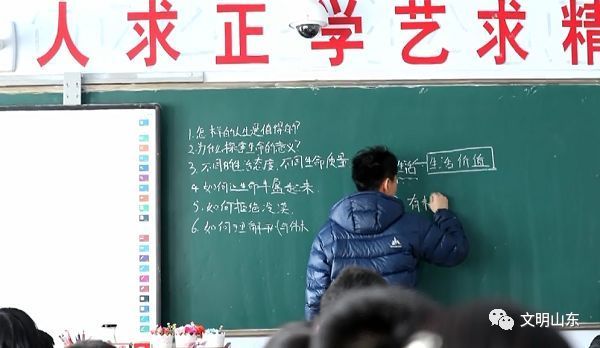 人求正 学艺求精
1.怎样的人生是值得的?
2.为什么探索生命的意义?
3.不同的生活态度,不同生命质量
活 ← 生活价值
4.如何让生命丰富起来.
5.如何拒绝冷漠.
有
6.如何理解
文明山东